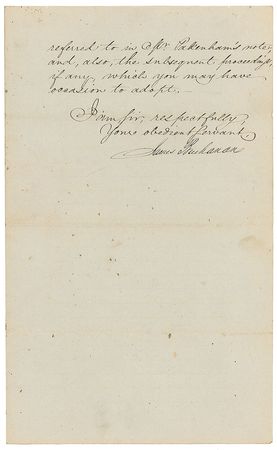 referred to in Mr Pakenham's note,
and, also, the subsequent proceedings,
if any, which you may have
occasion to adopt.—
I am sir, respectfully,
Your obedient servant,
James Buchanan